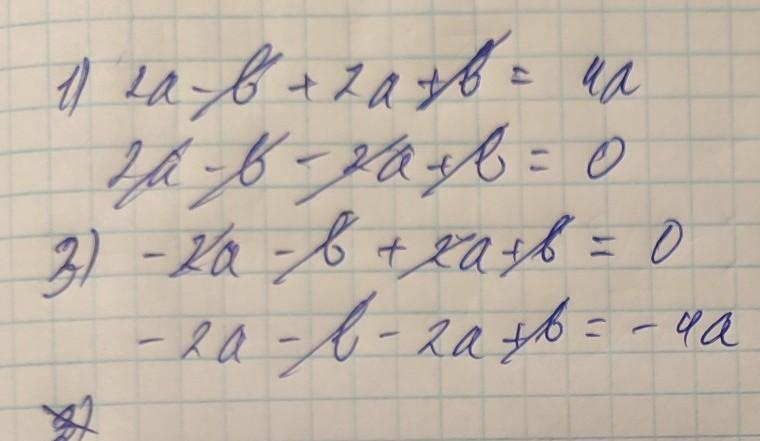 1) 2a - b + 2a + b = 4a
2a - b - 2a + b = 0
3) - 2a - b + 2a + b = 0
- 2a - b - 2a + b = - 4a